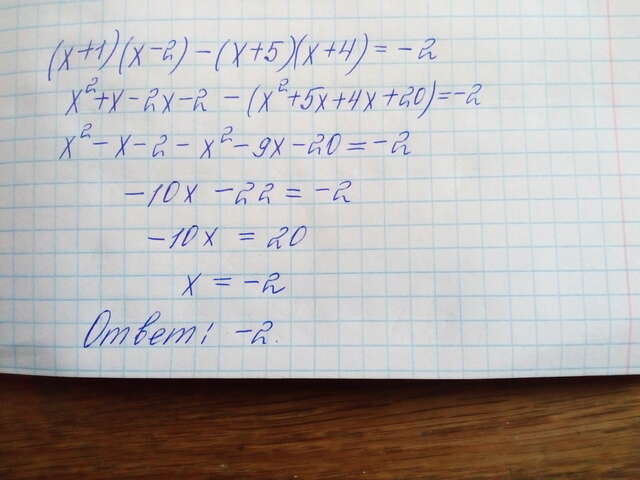 (x+1)(x-2)-(x+5)(x+4)=-2
x²+x-2x-2-(x²+5x+4x+20)=-2
x²-x-2-x²-9x-20=-2
-10x-22=-2
-10x=20
x=-2
Ответ: -2.